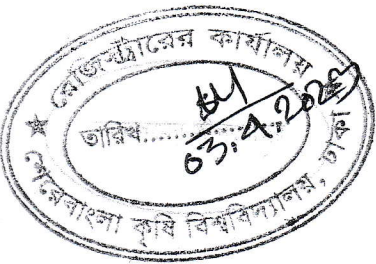 রেজিস্ট্রারের কার্যালয়
তারিখ....................
শেরেবাংলা কৃষি বিশ্ববিদ্যালয়, ঢাকা